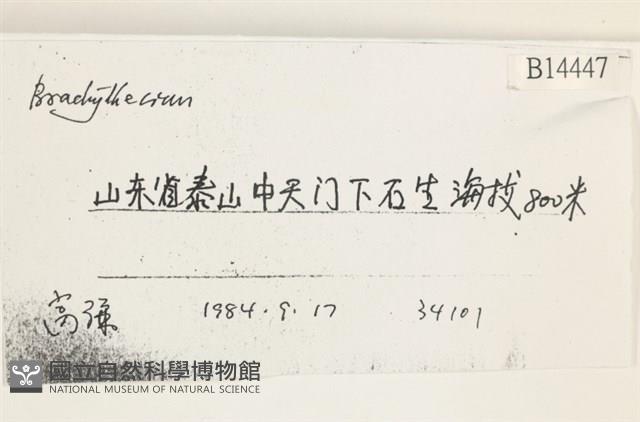 B14447
Brachythecium
山东省泰山中天门下石生海拔800米
高谦
1984.9.17
34101
國立自然科學博物館
NATIONAL MUSEUM OF NATURAL SCIENCE